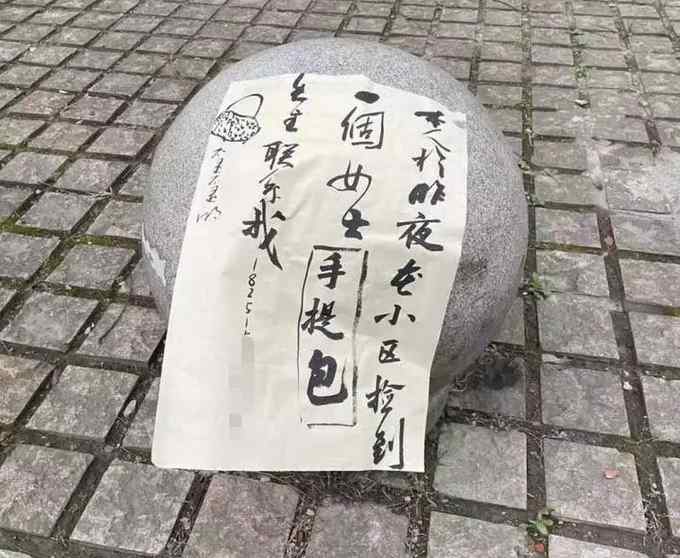 本人於昨夜在小区捡到
一個女士手提包
失主联系我
18251